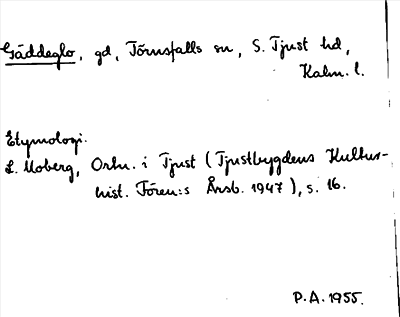 Gäddeglo, gd, Törnsfalls sn, S. Tjust hd,
Kalm. l.
Etymologi.
L. Moberg, Ortn. i Tjust (Tjustbygdens Kultur-
hist. Fören:s Årsb. 1947), s. 16.
P.A. 1955.